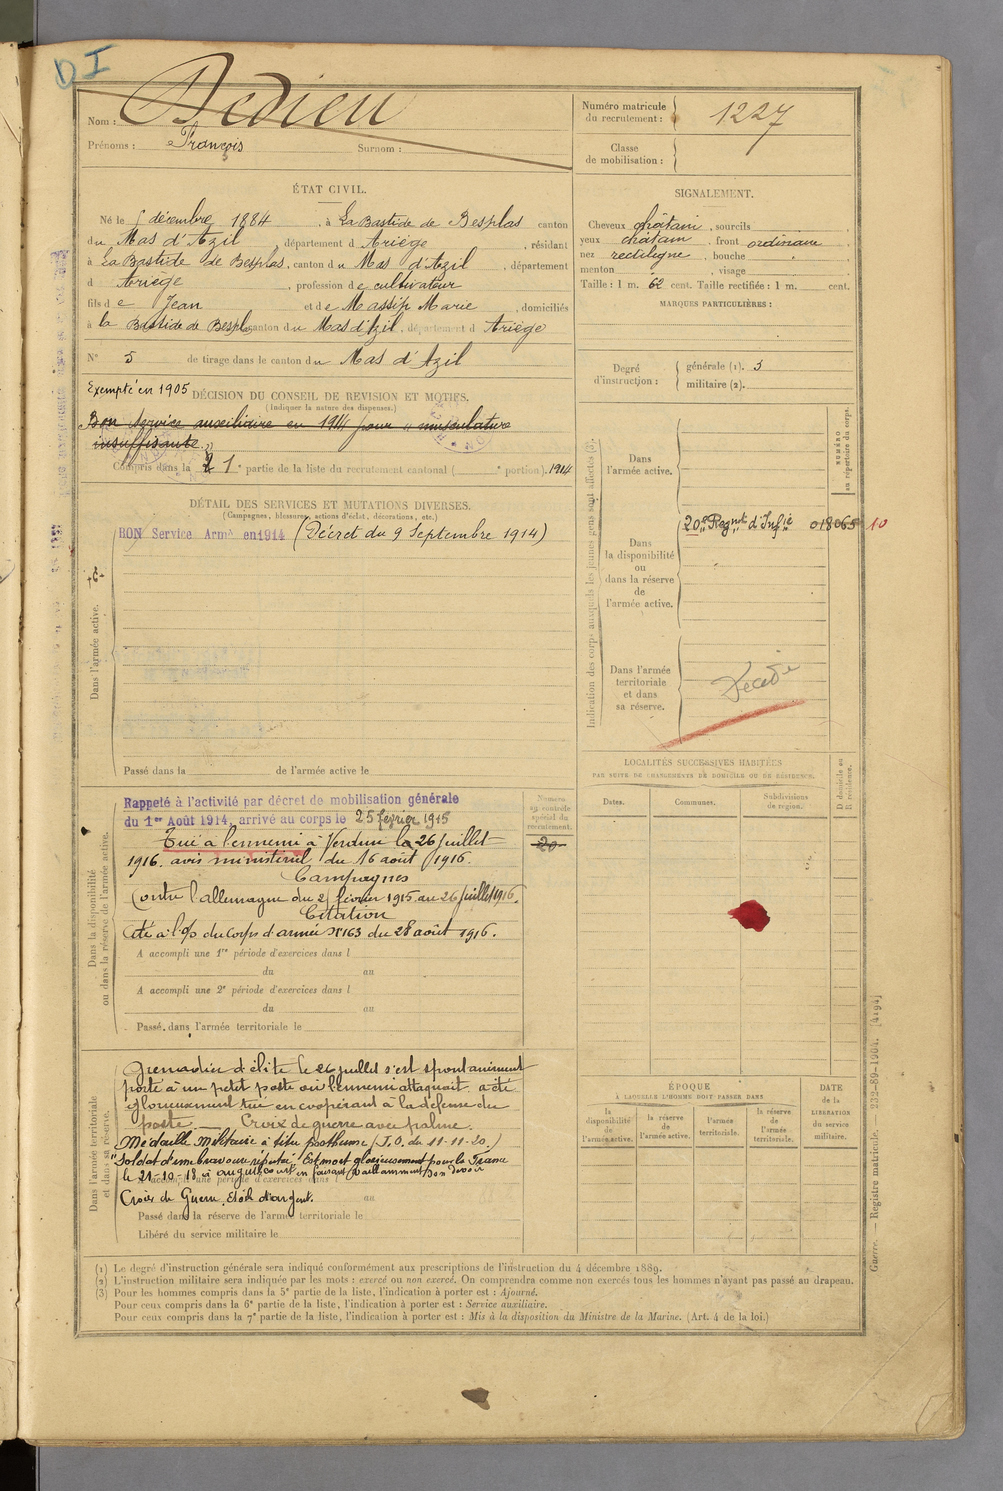 DI
Nom : Dedieu
Prénoms : François Surnom :
Numéro matricule du recrutement : 1227
Classe de mobilisation :
ÉTAT CIVIL.
Né le décembre 1884, à La Bastide de Besplas canton
du Mas d'Azil, département d Ariège, résidant
à La Bastide de Besplas, canton du Mas d'Azil, département
d Ariège, profession de cultivateur
fils de Jean et de Massip Marie, domiciliés
à la Bastide de Besplas canton du Mas d'Azil, département d Ariège
N° 5 de tirage dans le canton du Mas d'Azil
SIGNALEMENT.
Cheveux châtain, sourcils
yeux châtain, front ordinaire
nez rectiligne, bouche
menton, visage
Taille : 1 m. 62 cent. Taille rectifiée : 1 m. cent.
MARQUES PARTICULIÈRES :
Degré d'instruction : générale (1). 3
militaire (2).
Exempté en 1905 DÉCISION DU CONSEIL DE REVISION ET MOTIFS.
(Indiquer la nature des dispenses.)
Bon service auxiliaire en 1914 pour "musculature
insuffisante"
Compris dans la 1e partie de la liste du recrutement cantonal ( portion). 1914
DÉTAIL DES SERVICES ET MUTATIONS DIVERSES.
(Campagnes, blessures, actions d'éclat, décorations, etc.)
BON Service Armé en 1914 (Décret du 9 Septembre 1914)
Dans l'armée active.
Passé dans la de l'armée active le
Indication des corps auxquels les jeunes gens sont affectés (3).
NUMÉRO au répertoire du corps.
Dans l'armée active.
20e Regnt d'Infie 018065 10
Dans la disponibilité ou dans la réserve de l'armée active.
Dans l'armée territoriale et dans sa réserve.
Décédé
LOCALITÉS SUCCESSIVES HABITÉES
PAR SUITE DE CHANGEMENTS DE DOMICILE OU DE RÉSIDENCE.
Dates. Communes. Subdivisions de region. D domicile ou R résidence.
Dans la disponibilité ou dans la réserve de l'armée active.
Numéro au contrôle spécial du recrutement.
20
Rappelé à l'activité par décret de mobilisation générale
du 1er Août 1914, arrivé au corps le 25 février 1915
Tué à l'ennemi à Verdun le 26 juillet
1916. avis ministériel du 16 août 1916.
Campagnes
Contre l'allemagne du février 1915 au 26 juillet 1916.
Citation
Cité à l'O/ du Corps d'armée N°163 du 28 août 1916.
A accompli une 1re période d'exercices dans l
du au
A accompli une 2e période d'exercices dans l
du au
Passé dans l'armée territoriale le
Dans l'armée territoriale et dans sa réserve.
Grenadier d'élite le 26 juillet s'est spontanément
porté à un petit poste où l'ennemi attaquait a été
glorieusement tué en coopérant à la défense du
poste. Croix de guerre avec palme.
Médaille Militaire à titre posthume (J.O. du 11-11-20.)
"Soldat d'une bravoure réputée. Est mort glorieusement pour la France
le 21-10-18 à en faisant vaillamment son devoir
A accompli une période d'exercices dans l
Croix de Guerre. Etoile d'argent. au
Passé dans la réserve de l'armée territoriale le
Libéré du service militaire le
ÉPOQUE
À LAQUELLE L'HOMME DOIT PASSER DANS
la disponibilité de l'armée active.
la réserve de l'armée active.
l'armée territoriale.
la réserve de l'armée territoriale.
DATE de la LIBÉRATION du service militaire.
Guerre. — Registre matricule. 232-89-1904. [4194]
(1) Le degré d'instruction générale sera indiqué conformément aux prescriptions de l'instruction du 4 décembre 1889.
(2) L'instruction militaire sera indiquée par les mots : exercé ou non exercé. On comprendra comme non exercés tous les hommes n'ayant pas passé au drapeau.
(3) Pour les hommes compris dans la 5e partie de la liste, l'indication à porter est : Ajourné.
Pour ceux compris dans la 6e partie de la liste, l'indication à porter est : Service auxiliaire.
Pour ceux compris dans la 7e partie de la liste, l'indication à porter est : Mis à la disposition du Ministre de la Marine. (Art. 4 de la loi.)